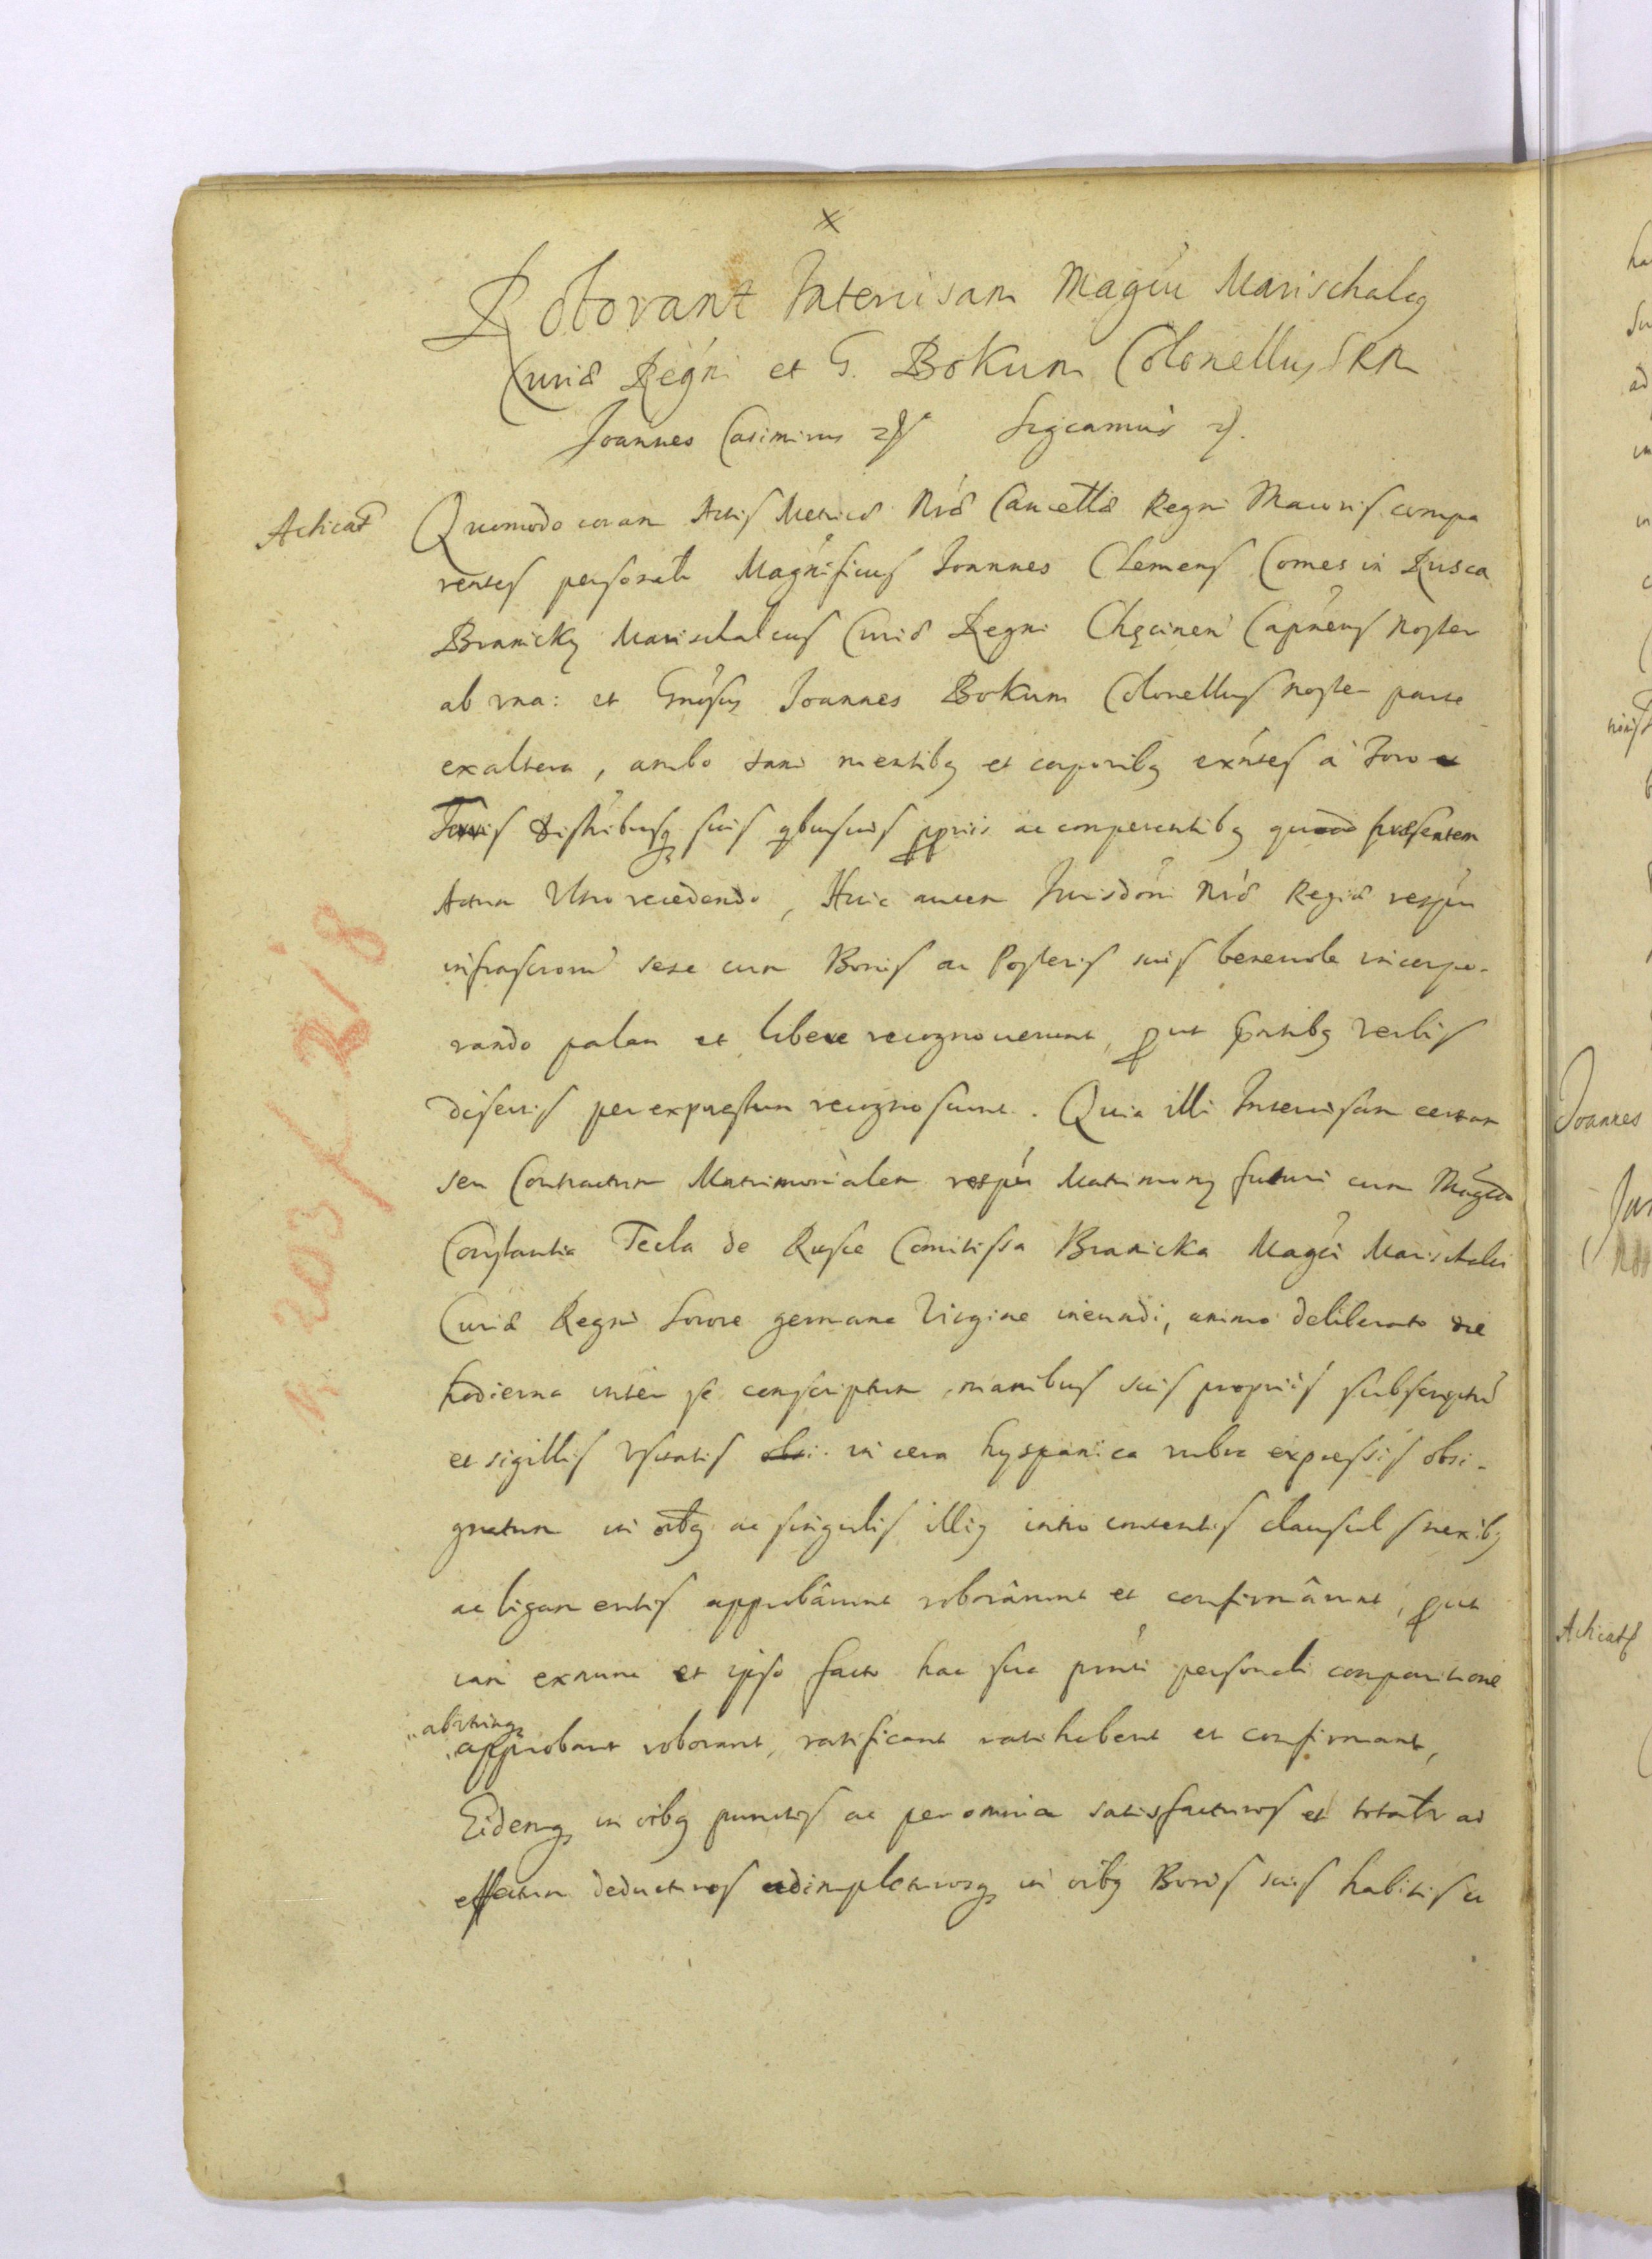 x
Roborant Intercisam Magcus Marischalcus
Curiæ Regni et G. Bokum Colonellus SRM
Joannes Casimirus etc Sigcamus etc.
Acticat
Quomodo coram Actis Metrices Nræ Cancellæ Regni Maioris compa
rentes personalr Magnificus Joannes Clemens Comes in Rusca
Branicky Marischalcus Curiæ Regni Chęcinen Capneus noster
ab vna: et Gnosus Joannes Bokum Colonellus noster parte
exaltera, ambo sani mentibq et corporibq exntes à Foro et
Terris Districtibusq suis qbusuis ppriis ac competentibq quoad præsentem
Actum Vltro recedendo, Huic autem Jurisdoni Nræ Regiæ respcu
infrascrorum sese cum Bonis ac Posteris suis beneuole incorpo-
rando palam et libere recognouerunt, put pntibq verbis
disertis per expressum recognoscunt. Quia illi Intercisam certam
seu Contractum Matrimonialem respcu Matrimonij futuri cum Magca
Constantia Tecla de Rusce Comitissa Branicka Magci Marischalci
Curiæ Regni Sorore germana Virgine ineundi, animo deliberato die
hodierna inter se conscriptum, manibus suis propriis subscriptum
et sigillis vsitatis obsi- in cera hyspanica rubra expressis obsi-
gnatum in oibq ac singulis illiq intro contentis clausulis nexibq
ac ligamentis approbârunt roborârunt et confirmârunt, put
iam exnunc et ipso facto hac sua pnti personali comparitione
approbant roborant, ratificant ratihabent et confirmant,
Eidemq in oibq punctis ac per omnia satisfacturos et totalr ad
effectum deducturos adimpleturosq in oibq Bonis suis habitis et
N. 203 f. 218
Joannes
Acticat